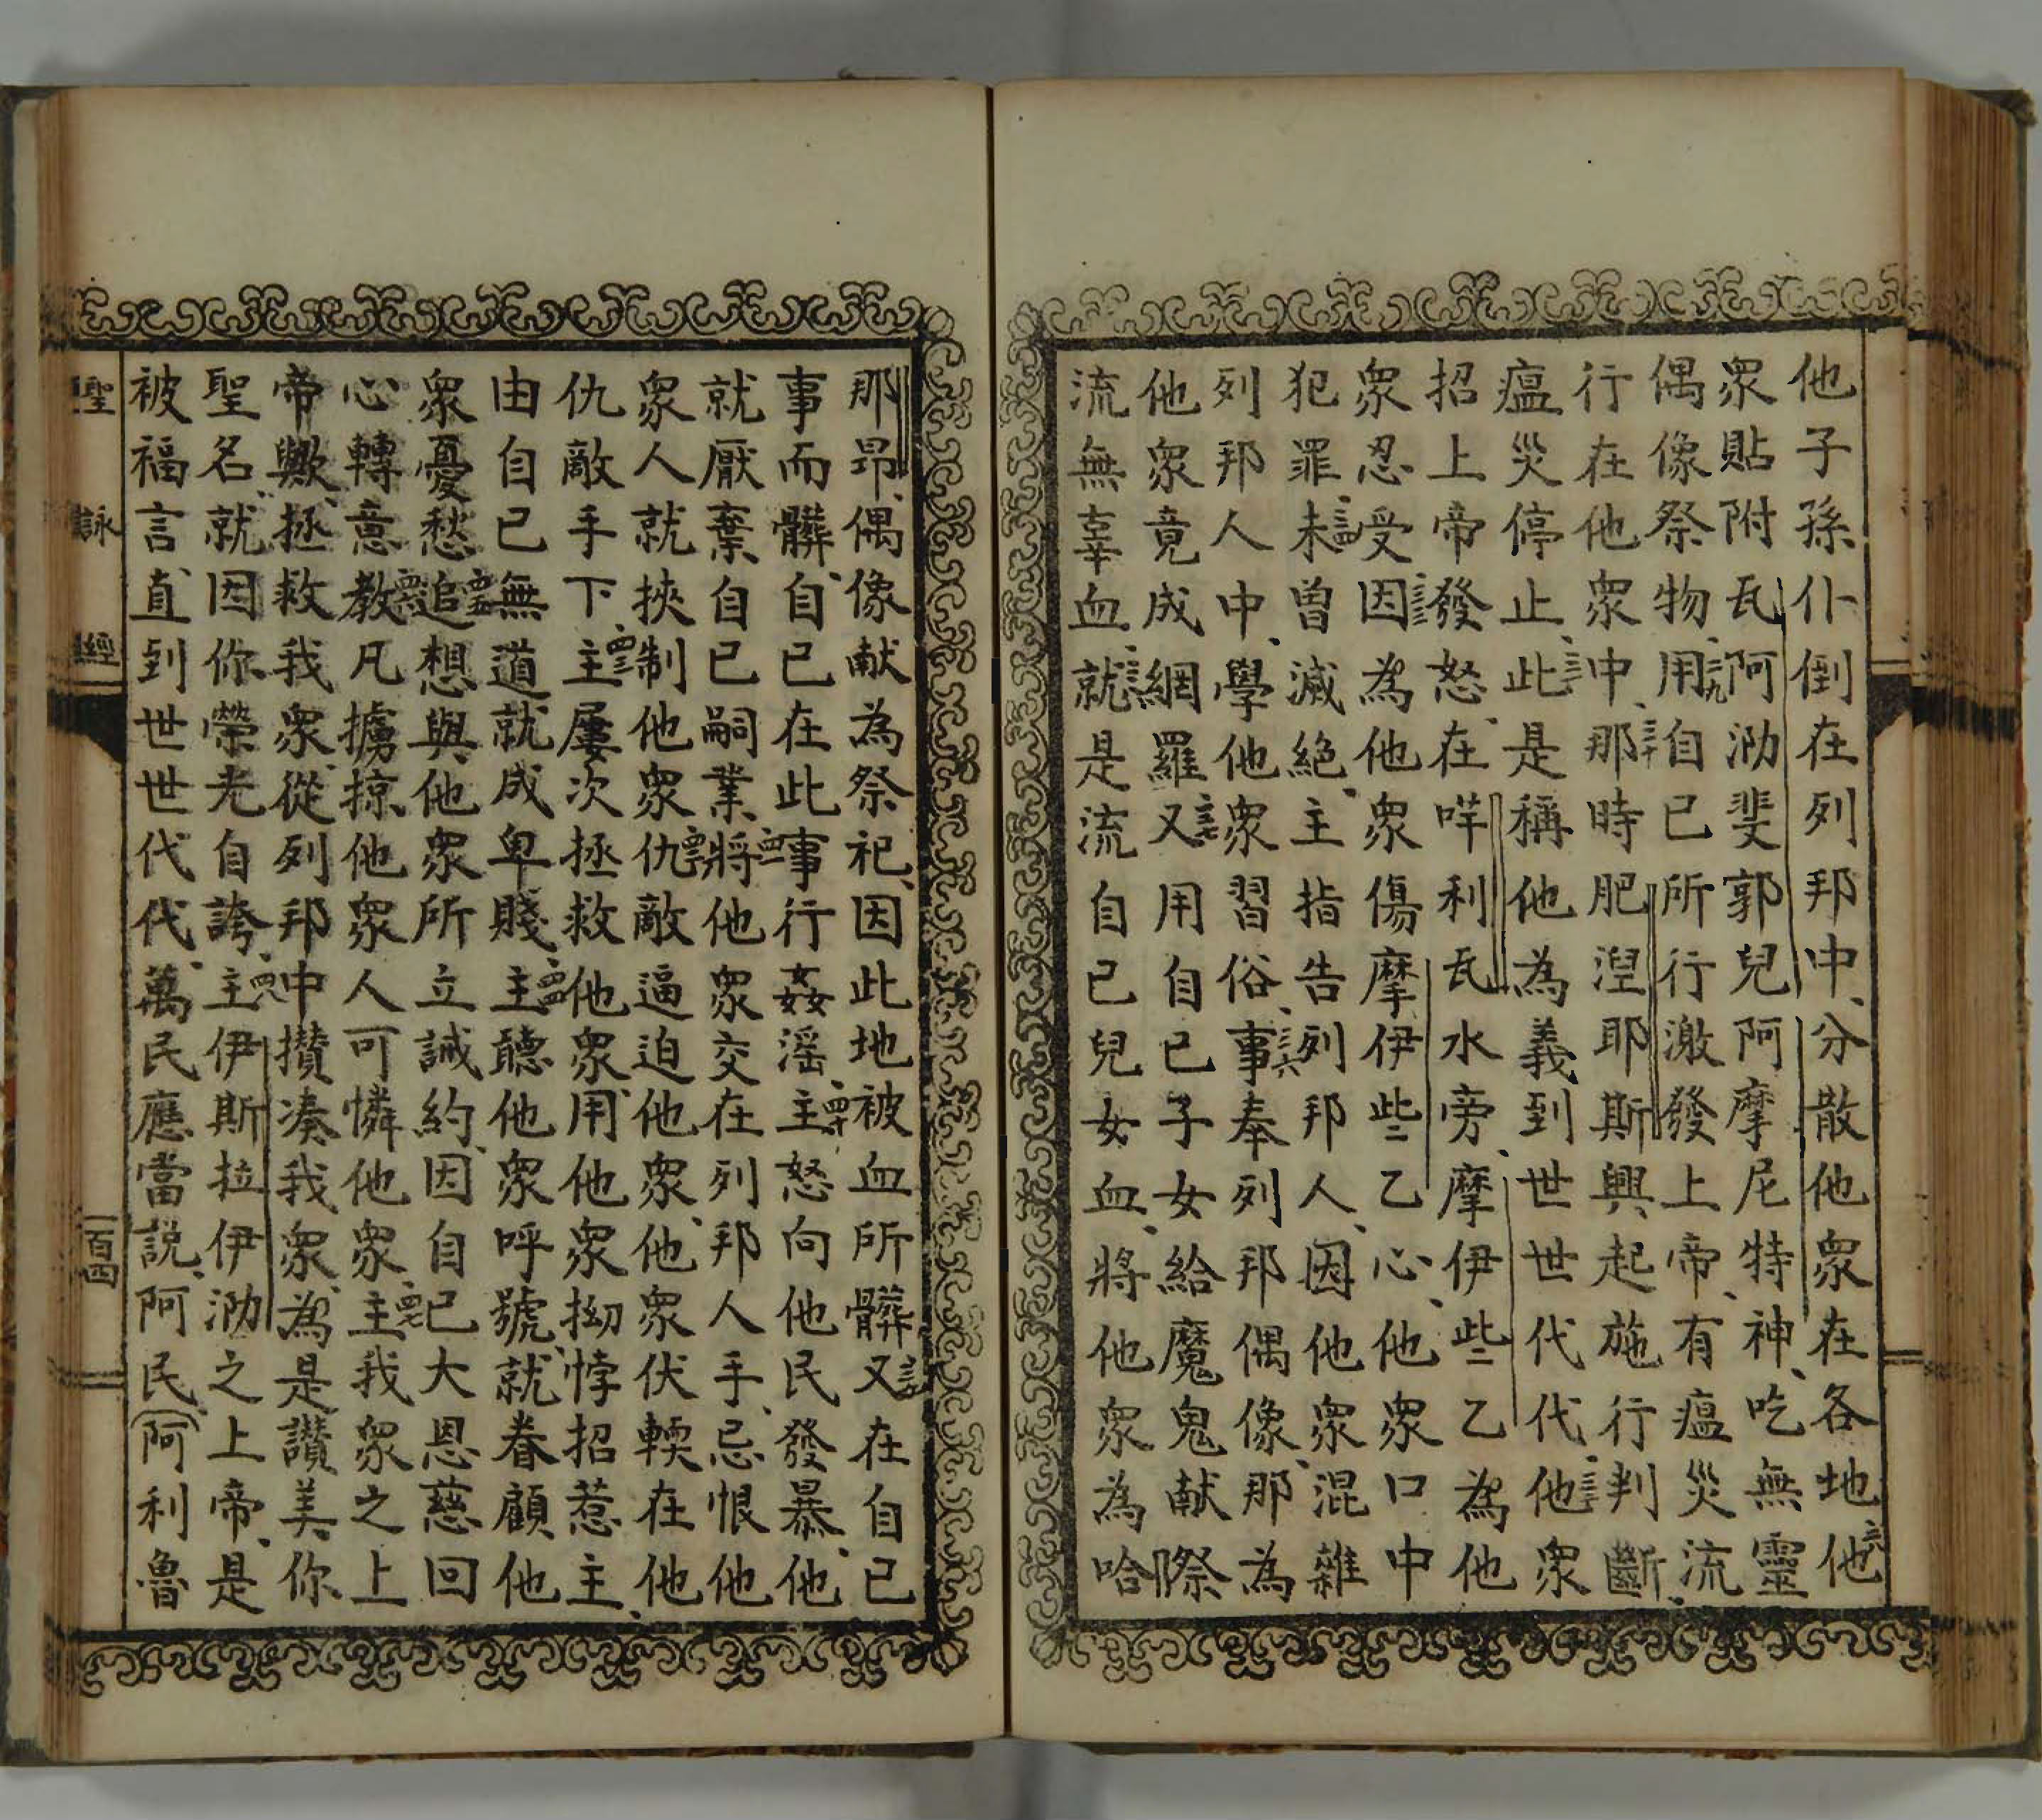 他子孫仆倒在列邦中、分散他眾在各地、他
眾貼附瓦阿泐斐郭兒阿摩尼特神、吃無靈
偶像祭物、用自己所行激發上帝、有瘟災流
行在他眾中、那時肥涅耶斯興起施行判斷、
瘟災停止、此是稱他為義到世世代代、他眾
招上帝發怒、在哶利瓦水旁、摩伊些乙為他
眾忍受、因為他眾傷摩伊些乙心、他眾口中
犯罪、未曾滅絕、主指告列邦人、因他眾混雜
列邦人中、學他眾習俗、事奉列邦偶像、那為
他眾竟成網羅、又用自己子女給魔鬼献祭
流無辜血、就是流自己兒女血、將他眾為哈
那昂偶像献為祭祀、因此地被血所髒、又在自己
事而髒、自己在此事行姦淫、主怒向他民發暴、他
就厭棄自己嗣業、將他眾交在列邦人手、忌恨他
眾人就挾制他眾、仇敵逼迫他眾、他眾伏輭在他
仇敵手下、主屢次拯救他眾、用他眾拗悖招惹主、
由自己無道就成卑賤、主聽他眾呼號、就眷顧他
眾憂愁、追想與他眾所立誡約、因自己大恩慈回
心轉意、教凡擄掠他眾人可憐他眾、主我眾之上
帝歟、拯救我眾、從列邦中攢湊我眾、為是讚美你
聖名、就因你榮光自誇、主伊斯拉伊泐之上帝、是
被福言直到世世代代、萬民應當說、阿民、(阿利魯
聖詠經
一百四